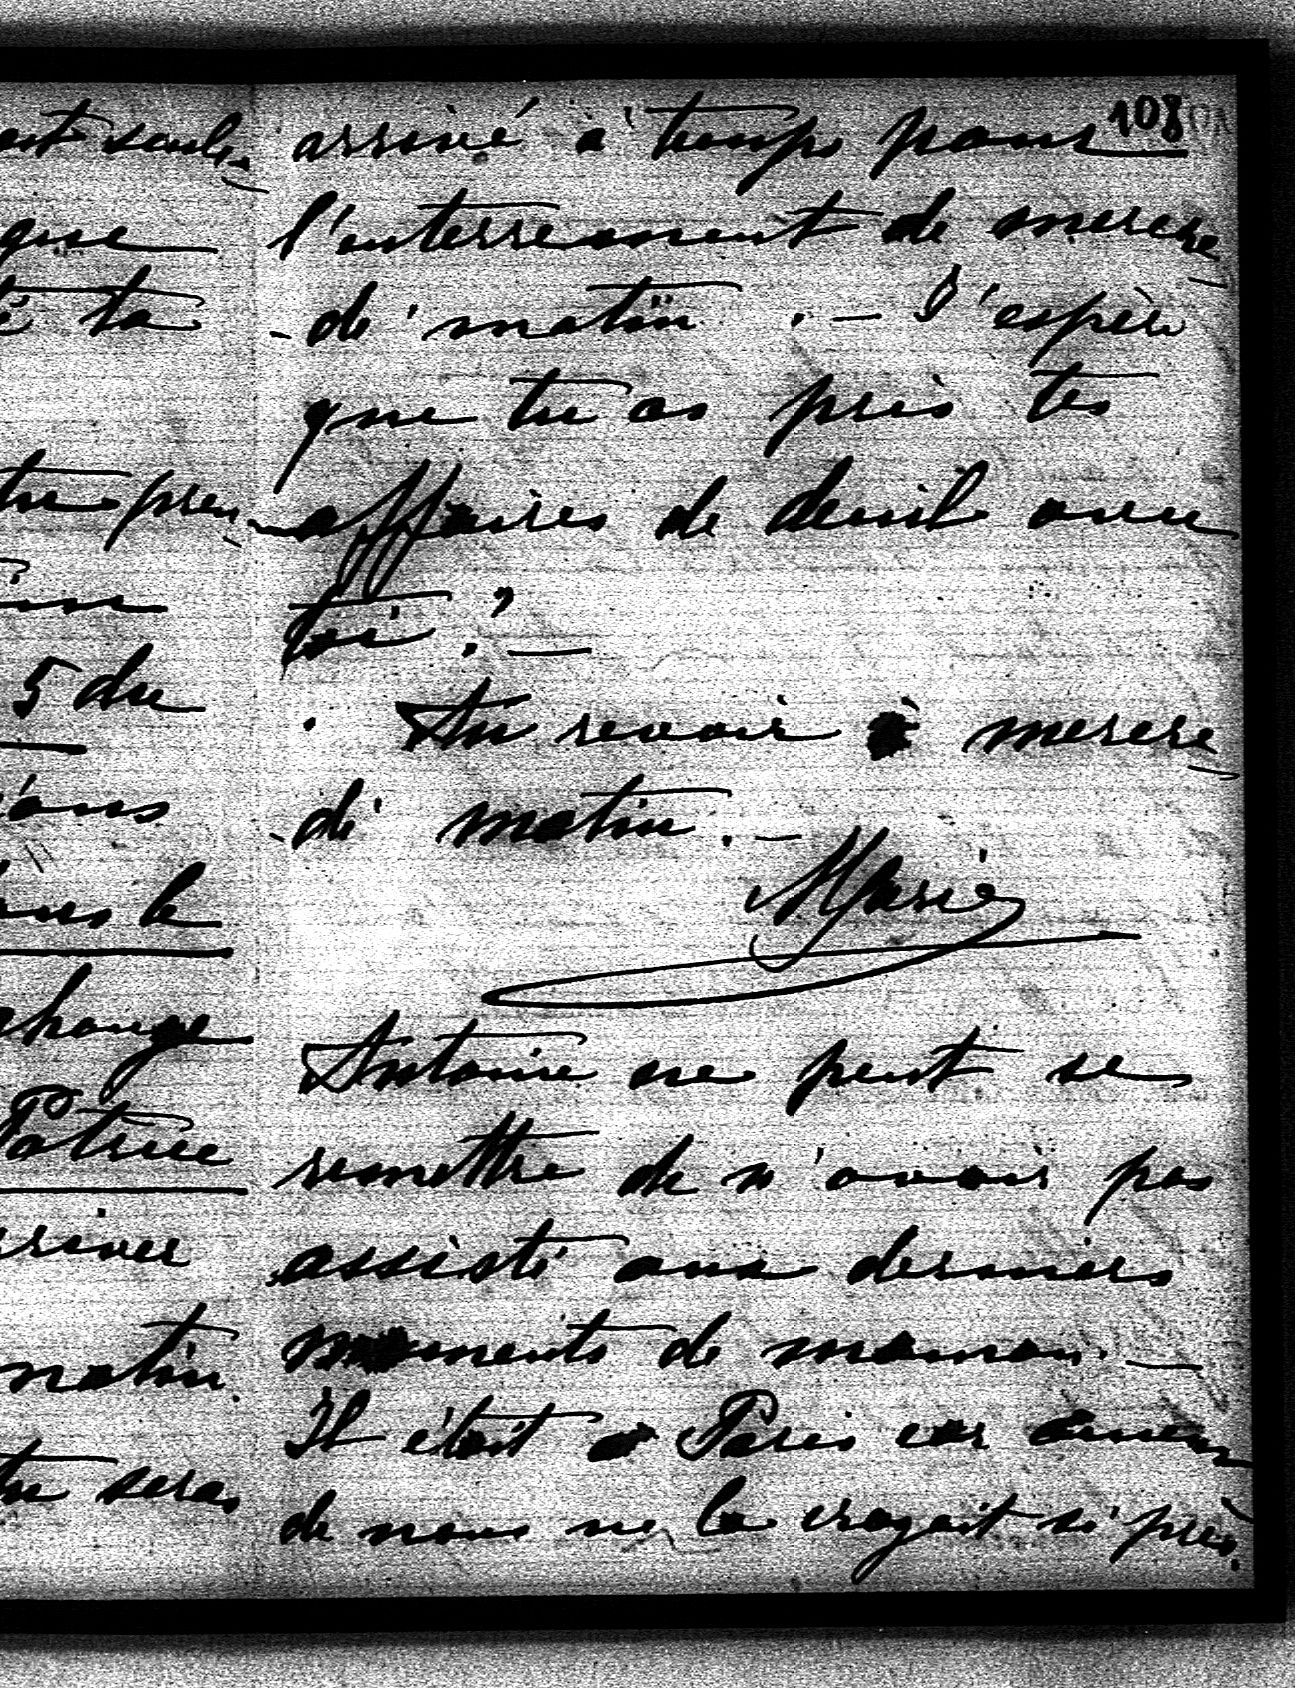 108
ent seule-
que
é ta
tu pren-
5 du
ans le
change
Patrice
arriver
matin.
tu seras
arrivé à temps pour
l'enterrement de mercre-
-di matin. — J'espère
que tu as pris tes
affaires de deuil avec
toi. ? —
Au revoir à mercre-
-di matin. —
Marie
Antoine ne peut se
remettre de n'avoir pas
assisté aux derniers
moments de maman. —
Il était à Paris car aucun
de nous ne la croyait si près.